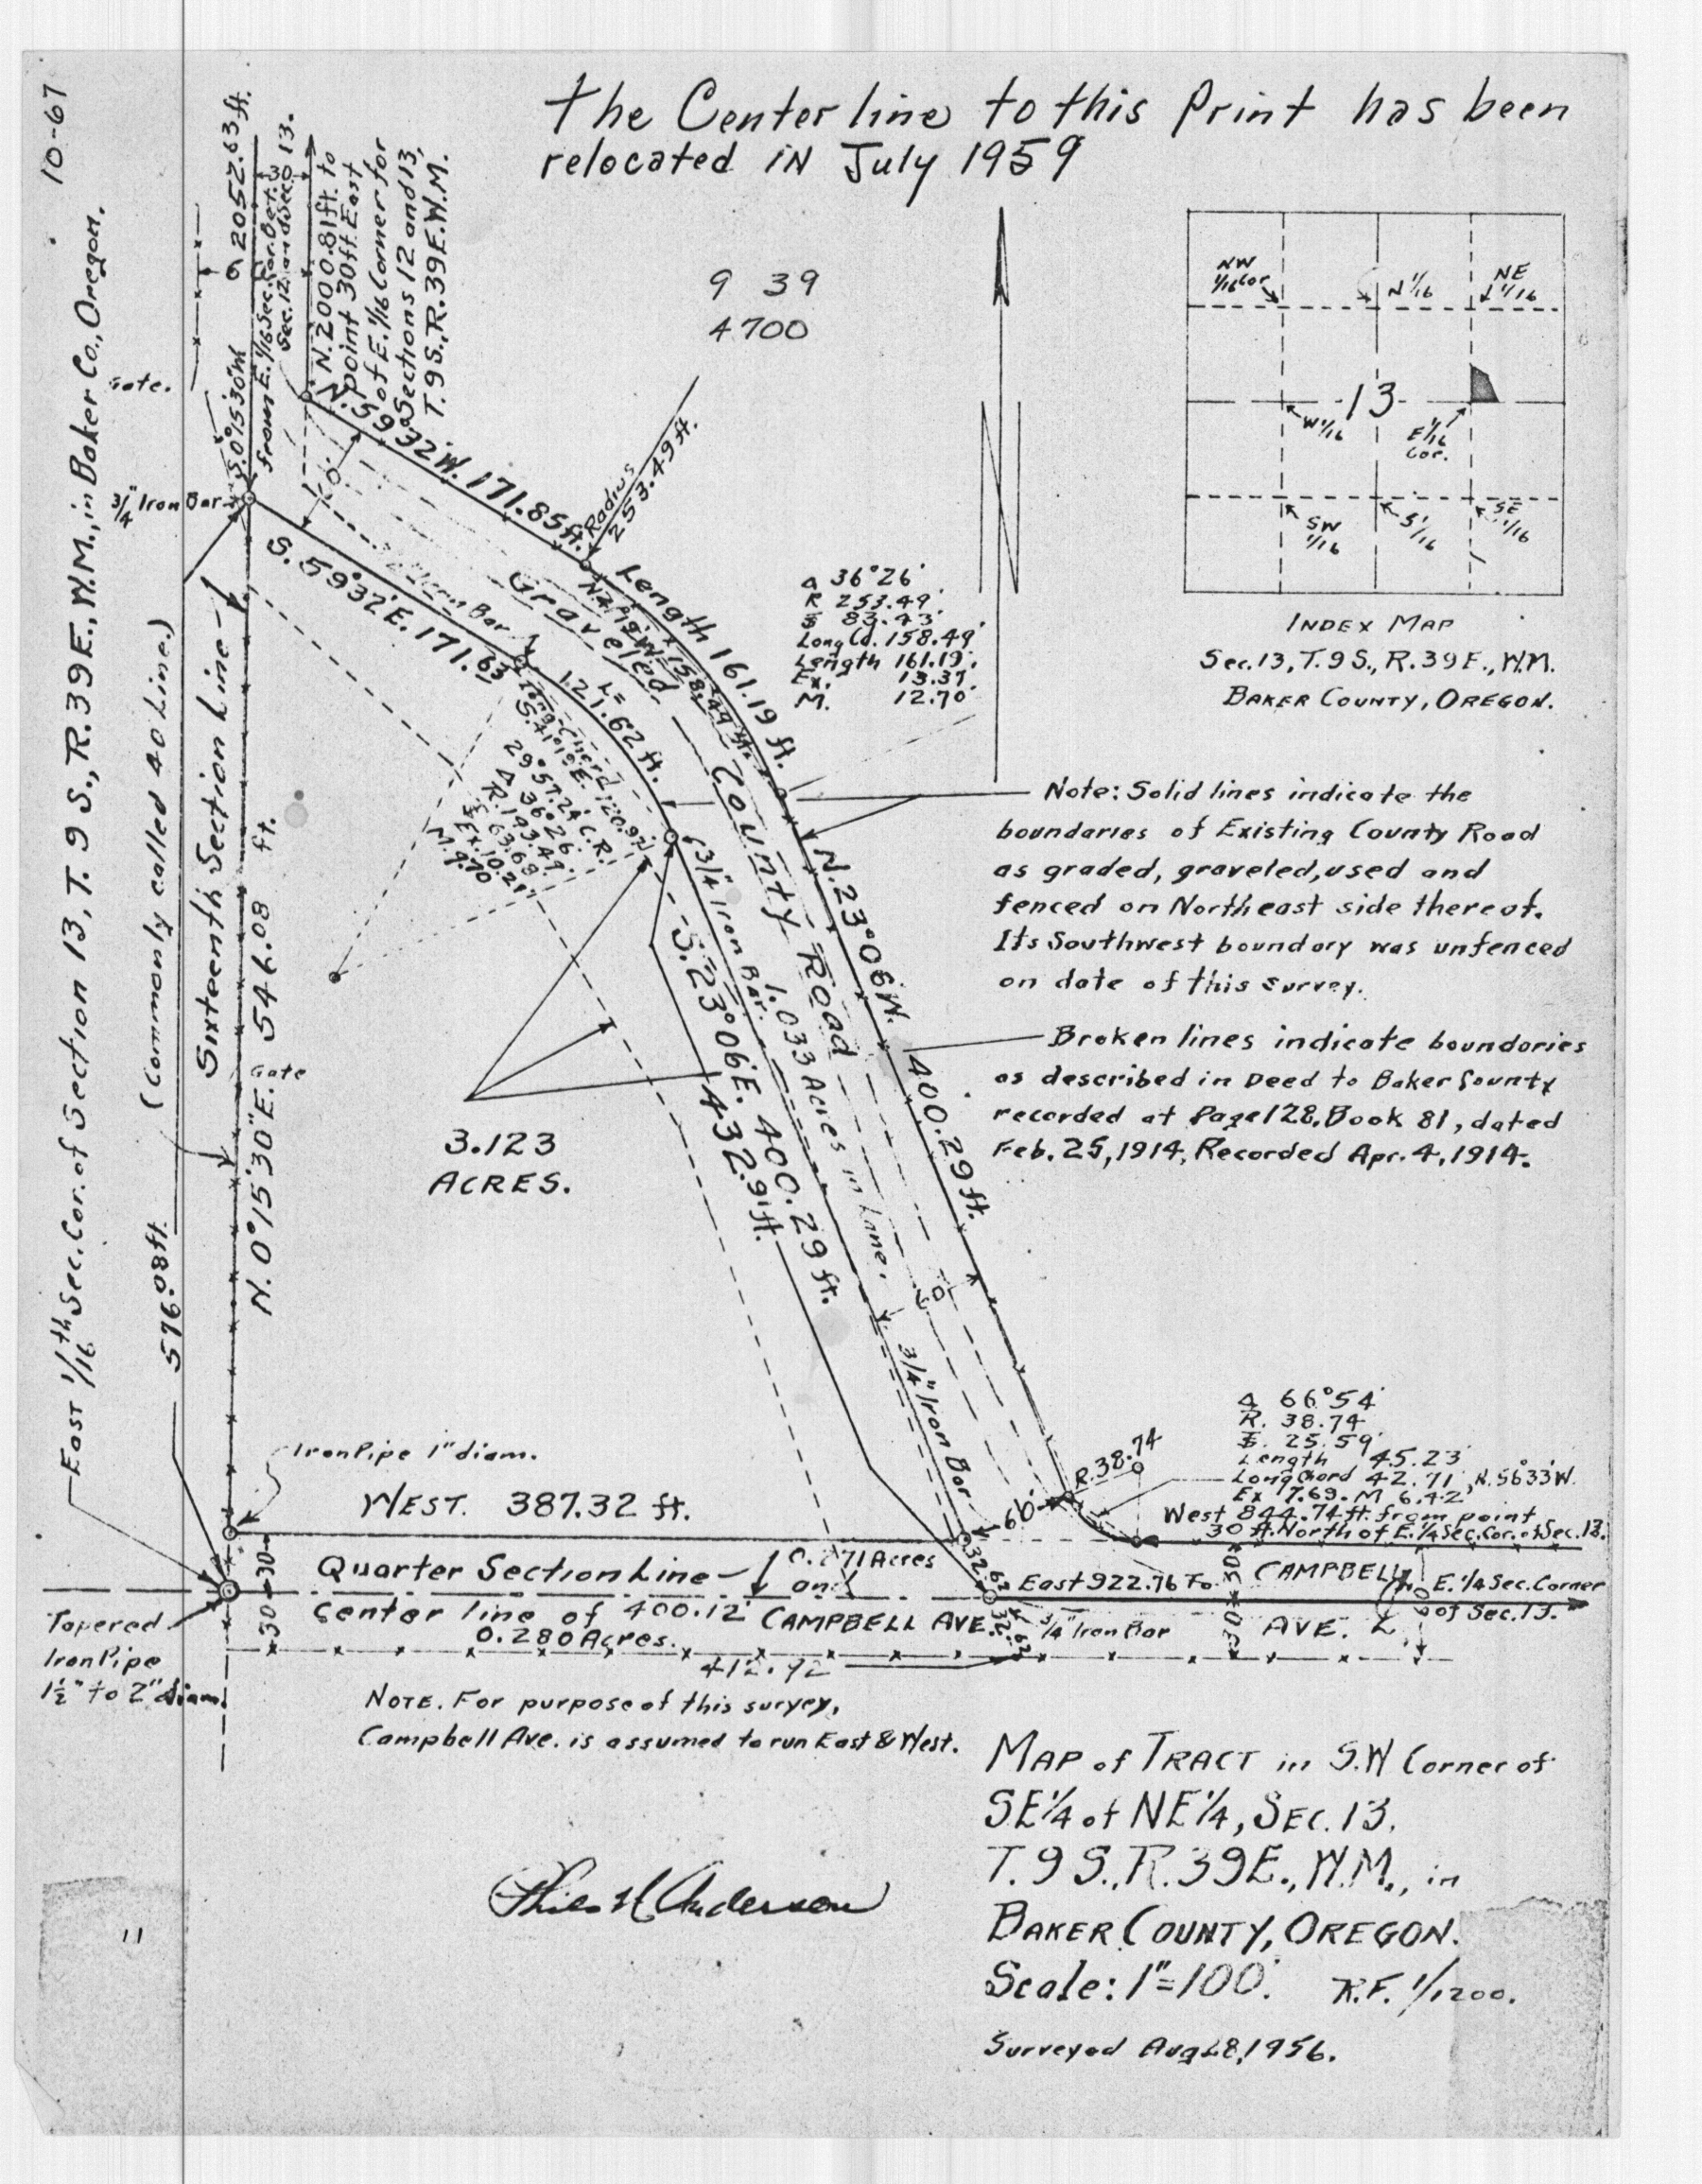 10-67
The Center line to this Print has been
relocated IN July 1959
9 39
4700
EAST 1/16th Sec. Cor. of Section 13, T. 9 S., R. 39 E., W.M., in Baker Co., Oregon.
(Commonly called 40 Line.)
Sixteenth Section Line
576.08 ft.
N. 0°15'30" E. 546.08 ft.
Gate
2052.63 ft.
S. 0°15'30" W
from E. 1/16 Sec. Cor. Bet.
Sec. 12 and Sec. 13.
30
N. 2000.81 ft. to
point 30 ft. East
of E. 1/16 Corner for
Sections 12 and 13,
T. 9 S., R. 39 E. W.M.
Gate.
3/4" Iron Bar
N. 59°32' W. 171.85 ft.
S. 59°32' E. 171.63
Radius
253.49 ft.
Length 161.19 ft.
Graveled
County Road
L=
121.62 ft.
Long Chord
S. 41°19' E. 120.92'
29°57.24' C.R.
Δ 36°26'
R. 193.49'
63.69'
Ex. 10.21'
M. 9.70
Δ 36°26'
R 253.49'
83.43'
Long Cd. 158.49'
Length 161.19'
Ex. 13.37
M. 12.70'
NW
1/16 Cor
N 1/16
NE
1/16
13
W 1/16
E 1/16
Cor.
SW
1/16
S 1/16
SE
1/16
INDEX MAP
Sec. 13, T. 9 S., R. 39 E., W.M.
BAKER COUNTY, OREGON.
Note: Solid lines indicate the
boundaries of Existing County Road
as graded, graveled, used and
fenced on Northeast side thereof.
Its Southwest boundary was unfenced
on date of this survey.
Broken lines indicate boundaries
as described in Deed to Baker County
recorded at Page 128, Book 81, dated
Feb. 25, 1914, Recorded Apr. 4, 1914.
3/4" Iron Bar.
N. 23°06' W. 400.29 ft.
S. 23°06' E. 400.29 ft.
432.91 ft.
1.033 Acres in Lane.
60'
3/4" Iron Bar
3.123
ACRES.
Iron Pipe 1" diam.
WEST. 387.32 ft.
60'
R. 38.74
Δ 66°54'
R. 38.74
25.59'
Length 45.23'
Long Chord 42.71', N. 56°33' W.
Ex 7.69. M 6.42'
West 844.74 ft. from point
30 ft. North of E. 1/4 Sec. Cor. of Sec. 13.
Quarter Section Line
0.271 Acres
32.62
East 922.76 To
CAMPBELL
E. 1/4 Sec. Corner
of Sec. 13.
Center line of 400.12' CAMPBELL AVE.
0.280 Acres.
32.62
3/4" Iron Bar
AVE.
30 30
30 30
60
412.92
Tapered
Iron Pipe
1 1/2" to 2" diam.
NOTE. For purpose of this survey,
Campbell Ave. is assumed to run East & West.
MAP of TRACT in S.W Corner of
SE 1/4 of NE 1/4, SEC. 13.
T. 9 S., R. 39 E., W.M., in
BAKER COUNTY, OREGON.
Scale: 1"=100'. R.F. 1/1200.
Surveyed Aug 28, 1956.
11